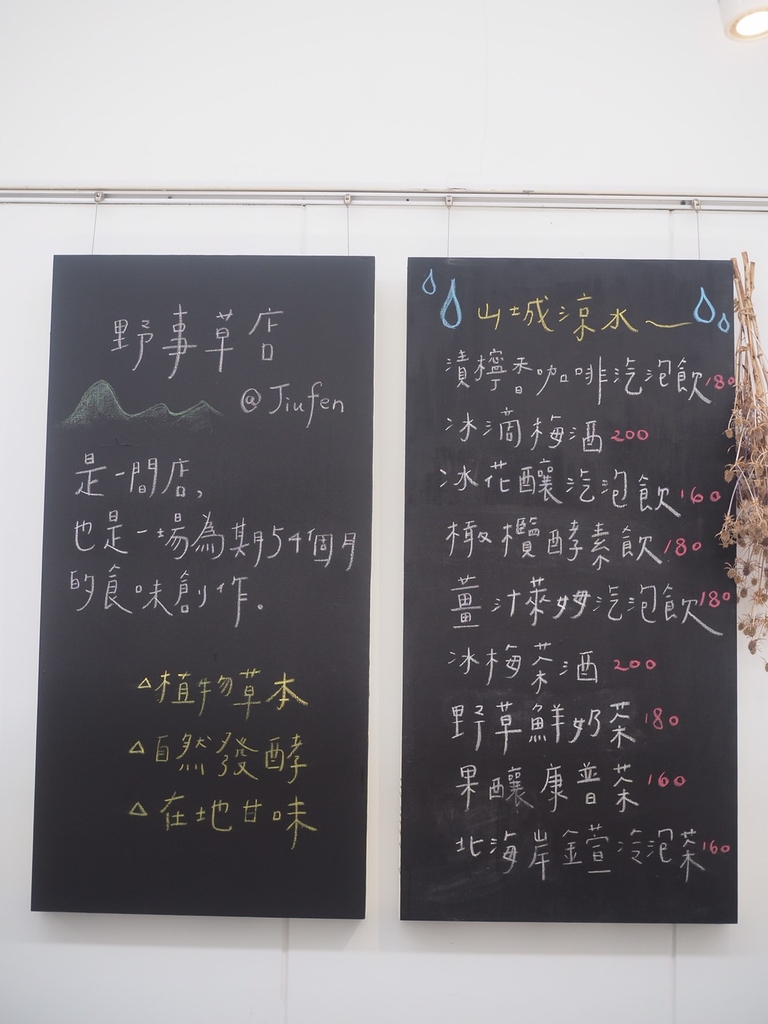 野事草店
@Jiufen
是一間店,
也是一場為期54個月
的食味創作。
△植物草本
△自然發酵
△在地甘味
山城涼水~
漬檸香咖啡汽泡飲180
冰滴梅酒200
冰花釀汽泡飲160
橄欖酵素飲180
薑汁萊姆汽泡飲180
冰梅茶酒200
野草鮮奶茶180
果釀康普茶160
北海岸金萱冷泡茶160